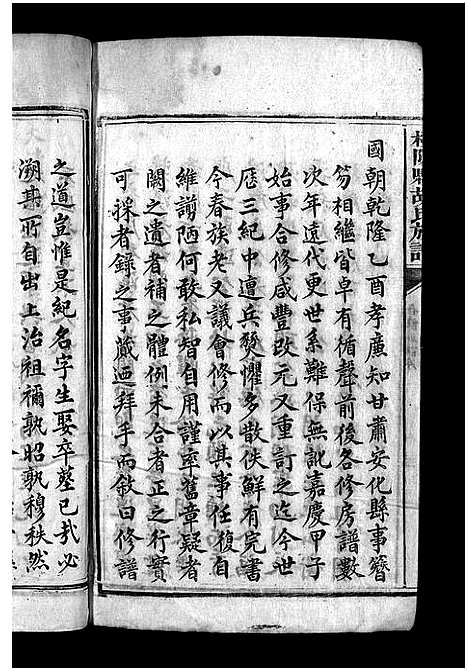 國朝乾隆乙酉孝廣知甘肅安化縣事簪
笏相繼皆卓有循聲前後各修房譜數
次年遠代更世系難保無訛嘉慶甲子
始事合修咸豐改元又重訂之迄今世
歴三紀中遭兵燹懼多散佚鮮有完書
今春族老又議會修而以其事任復自
維譾陋何敢私智自用謹率舊章疑者
闕之遺者補之體例未合者正之行實
可採者錄之事蕆迺拜手而敘曰修譜
之道豈惟是紀名字生娶卒塟已㢤必
溯其所自出上治祖禰孰昭孰穆秩然